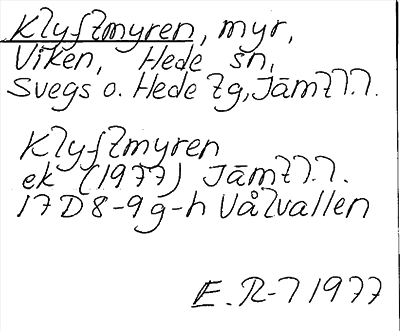 Klyftmyren, myr,
Viken, Hede sn,
Svegs o. Hede tg, Jämtl.l.
Klyftmyren
ek (1977) Jämtl.l.
17D8-9g-h Vålvallen
E. R-l 1977